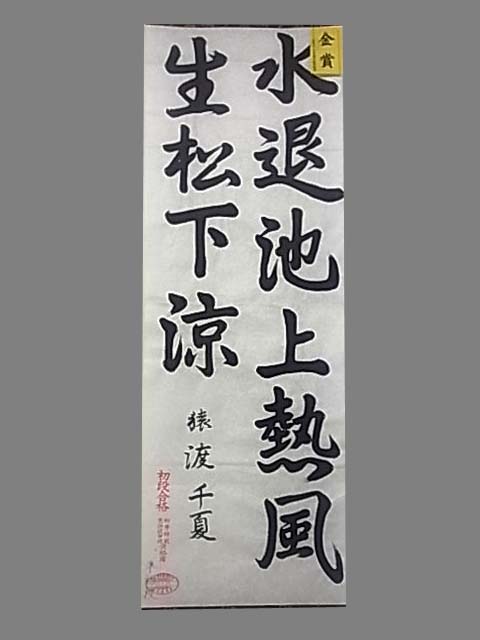 金賞
水退池上熱風
生松下涼
猿渡千夏
初段合格